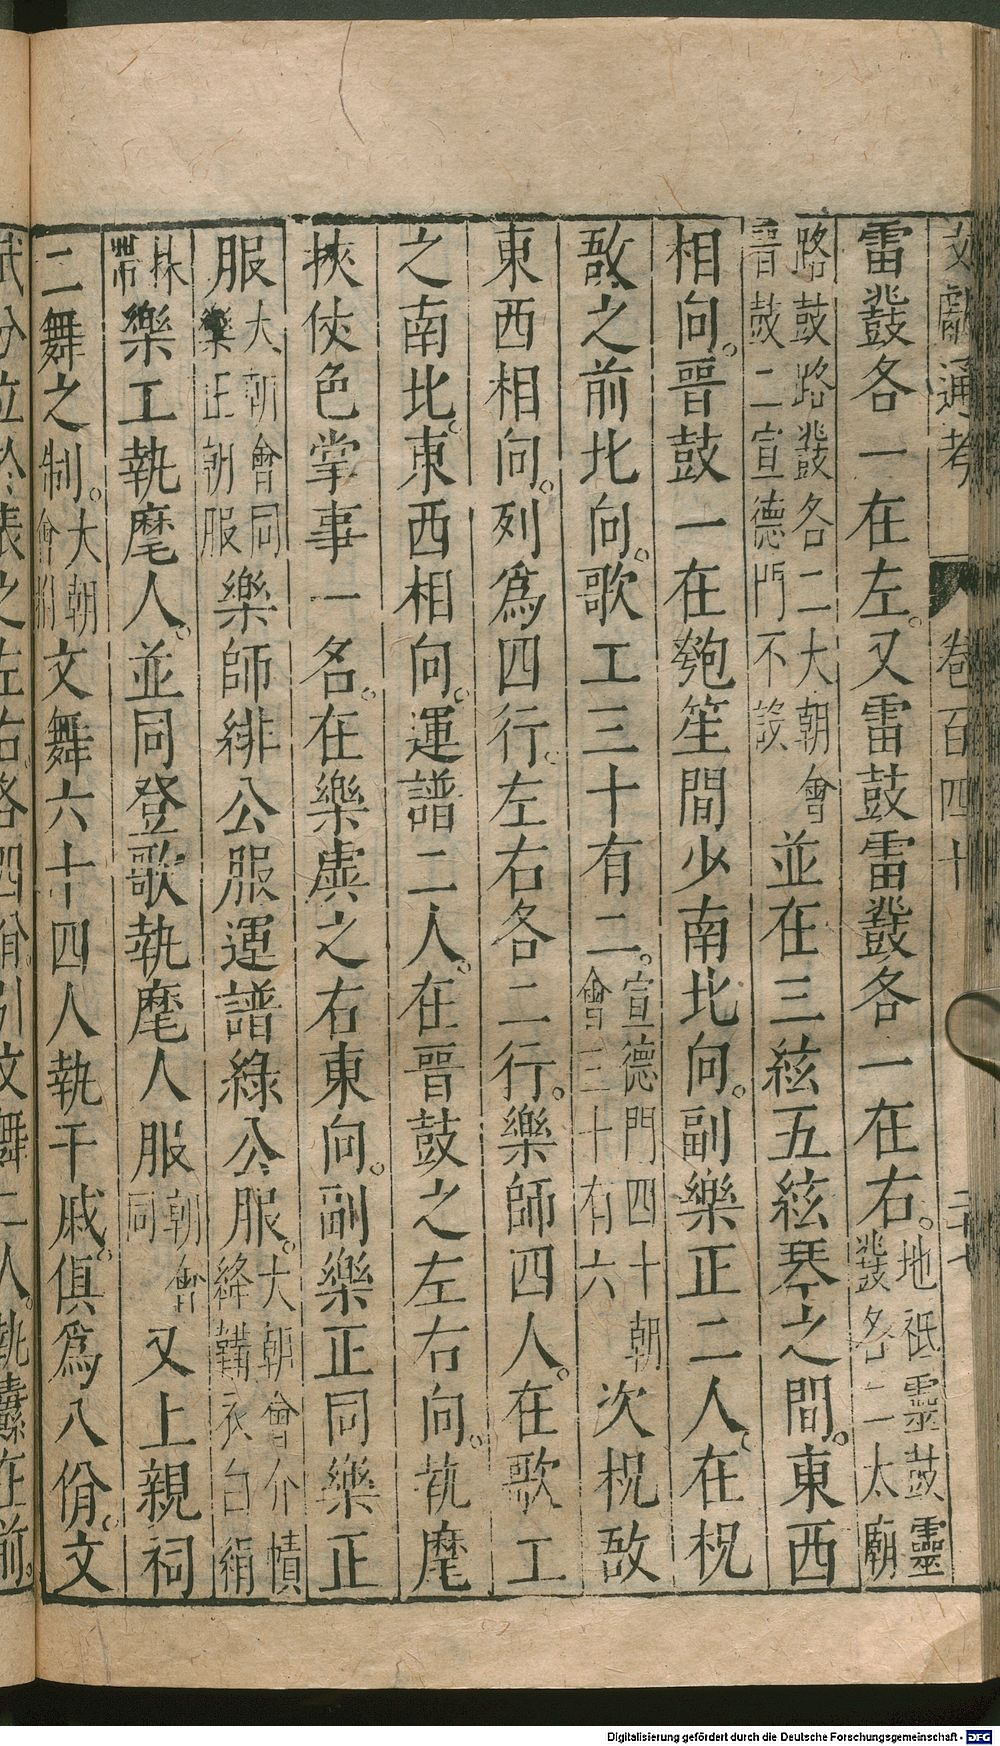 文獻通考 卷百四十
雷鼗各一在左。又雷鼓雷鼗各一在右。地祇靈鼓靈鼗各二太廟
路鼓路鼗各二大朝會晉鼓二宣德門不設並在三絃五絃琴之間。東西
相向。晉鼓一在匏笙間少南北向。副樂正二人、在柷
敔之前北向。歌工三十有二。宣德門四十朝會三十有六次柷敔
東西相向。列爲四行。左右各二行。樂師四人。在歌工
之南北、東西相向。運譜二人。在晉鼓之左右向。執麾
挾仗色掌事一名。在樂虡之右東向。副樂正同樂正
服大朝會同樂正朝服樂師緋公服運譜綠公服。大朝會介幘絳韝衣白絹
抹帶樂工執麾人。並同登歌執麾人服朝會同又上親祠
二舞之制。大朝會同文舞六十四人執干戚。俱爲八佾。文
武分立於表之左右。各四佾。引文舞二人。執纛在前。
Digitalisierung gefördert durch die Deutsche Forschungsgemeinschaft - DFG